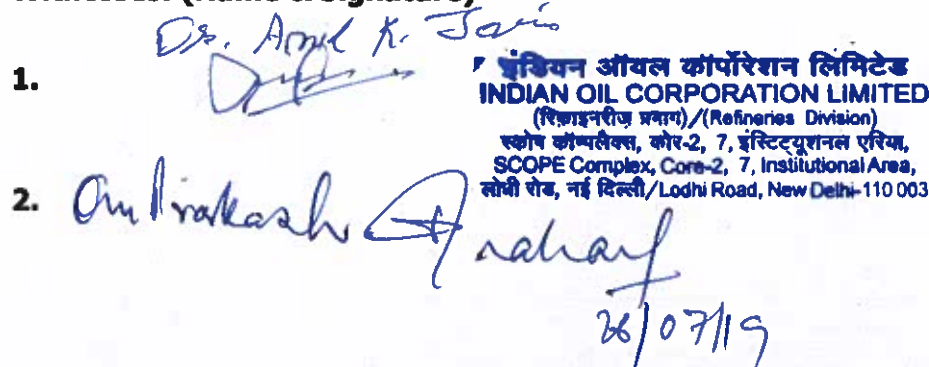 (Name & Signature)
Dr. Anil K. Jain
1.
इंडियन ऑयल कॉर्पोरेशन लिमिटेड
INDIAN OIL CORPORATION LIMITED
(रिफ़ाइनरीज़ प्रभाग)/(Refineries Division)
स्कोप कॉम्पलैक्स, कोर-2, 7, इंस्टिट्यूशनल एरिया,
SCOPE Complex, Core-2, 7, Institutional Area,
लोधी रोड, नई दिल्ली/Lodhi Road, New Delhi-110 003
2. Om Prakash
26/07/19